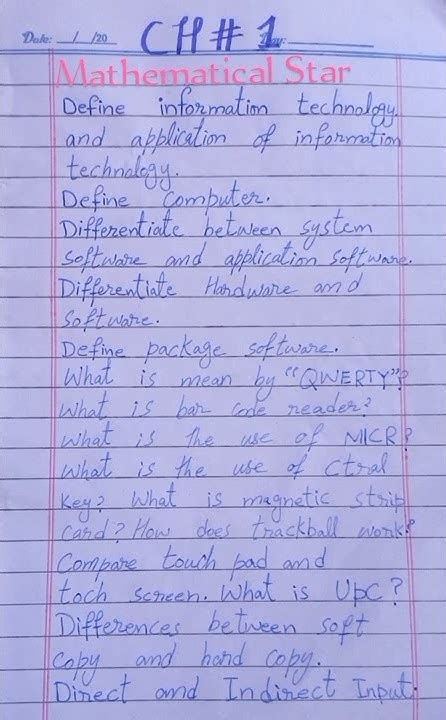 CH # 1
Date: __/__/20 Day:
Mathematical Star
Define information technology
and application of information
technology.
Define Computer.
Differentiate between system
software and application software.
Differentiate Hardware and
software.
Define package software.
What is mean by "QWERTY"?
What is bar code reader?
What is the use of MICR?
What is the use of Ctral
Key? What is magnetic strip
card? How does trackball work?
Compare touch pad and
toch screen. What is UPC?
Differences between soft
copy and hard copy.
Direct and Indirect Input.